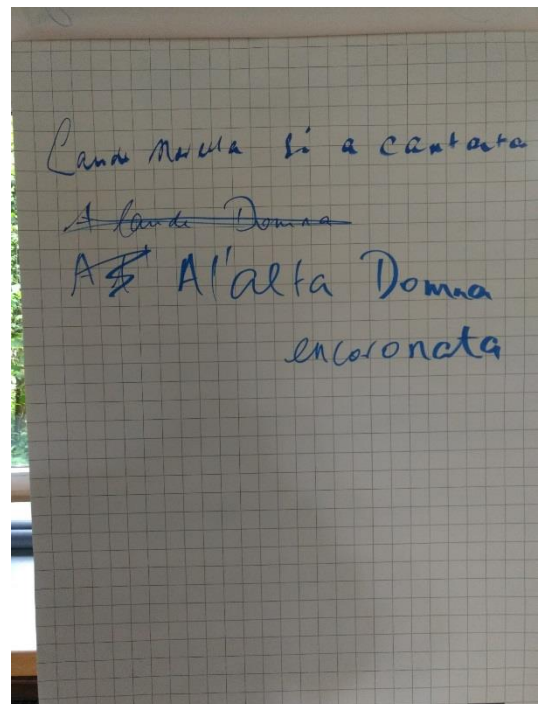 Laude Novella si a cantata
A laude Domna
Al'alta Domna
encoronata